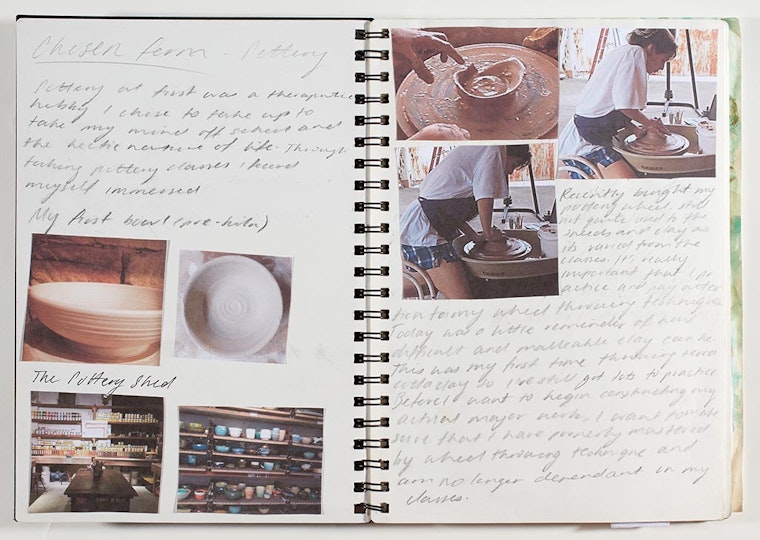 Chosen form - Pottery
Pottery at first was a therapeutic
hobby I chose to take up to
take my mind off school and
the hectic nature of life. Through
taking pottery classes I found
myself immersed
My first bowl (pre-kiln)
The Pottery Shed
Recently bought my
pottery wheel, still
not quite used to the
speeds and clay as
its varied from the
classes. It's really
important that I pr-
actice and pay atten-
tion to my wheel throwing techniques.
Today was a little reminder of how
difficult and malleable clay can be.
This was my first time throwing terra
cotta clay so I've still got lots to practice.
Before I want to begin constructing my
actual major work, I want to make
sure that I have properly mastered
by wheel throwing technique and
am no longer dependant in my
classes.